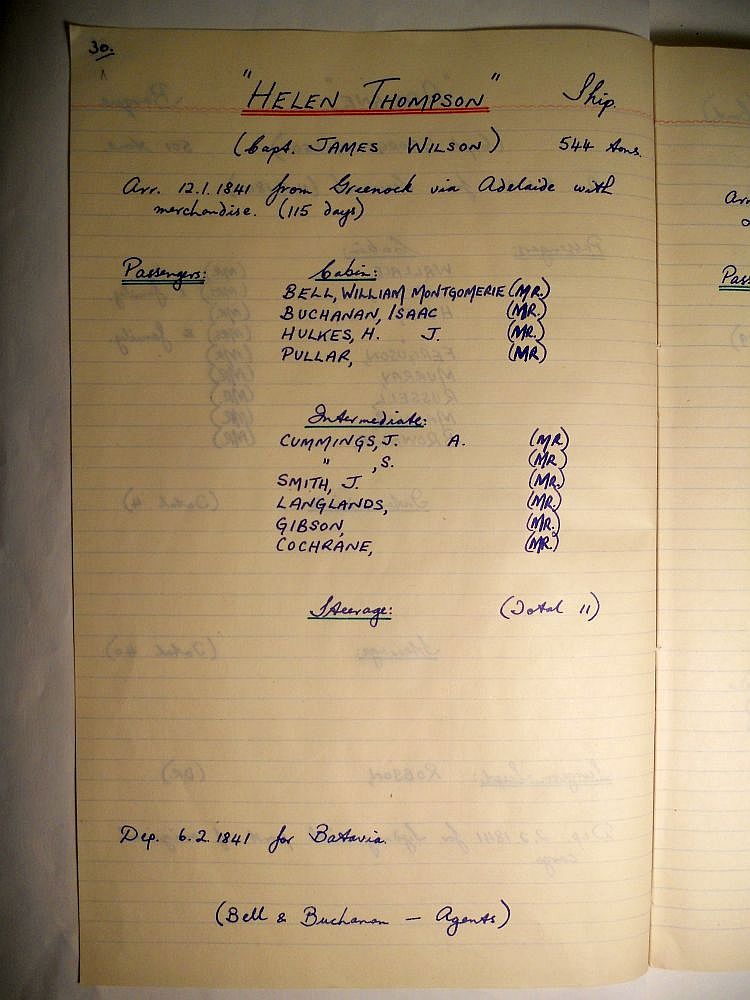 30.
"HELEN THOMPSON" Ship.
(Capt. JAMES WILSON) 544 tons.
Arr. 12.1.1841 from Greenock via Adelaide with
merchandise. (115 days)
Passengers: Cabin:
BELL, WILLIAM MONTGOMERIE (MR.)
BUCHANAN, ISAAC (MR.)
HULKES, H. J. (MR.)
PULLAR, (MR)
Intermediate:
CUMMINGS, J. A. (MR)
" , S. (MR)
SMITH, J. (MR.)
LANGLANDS, (MR.)
GIBSON, (MR.)
COCHRANE, (MR.)
Steerage: (Total 11)
Dep. 6.2.1841 for Batavia.
(Bell & Buchanan — Agents)